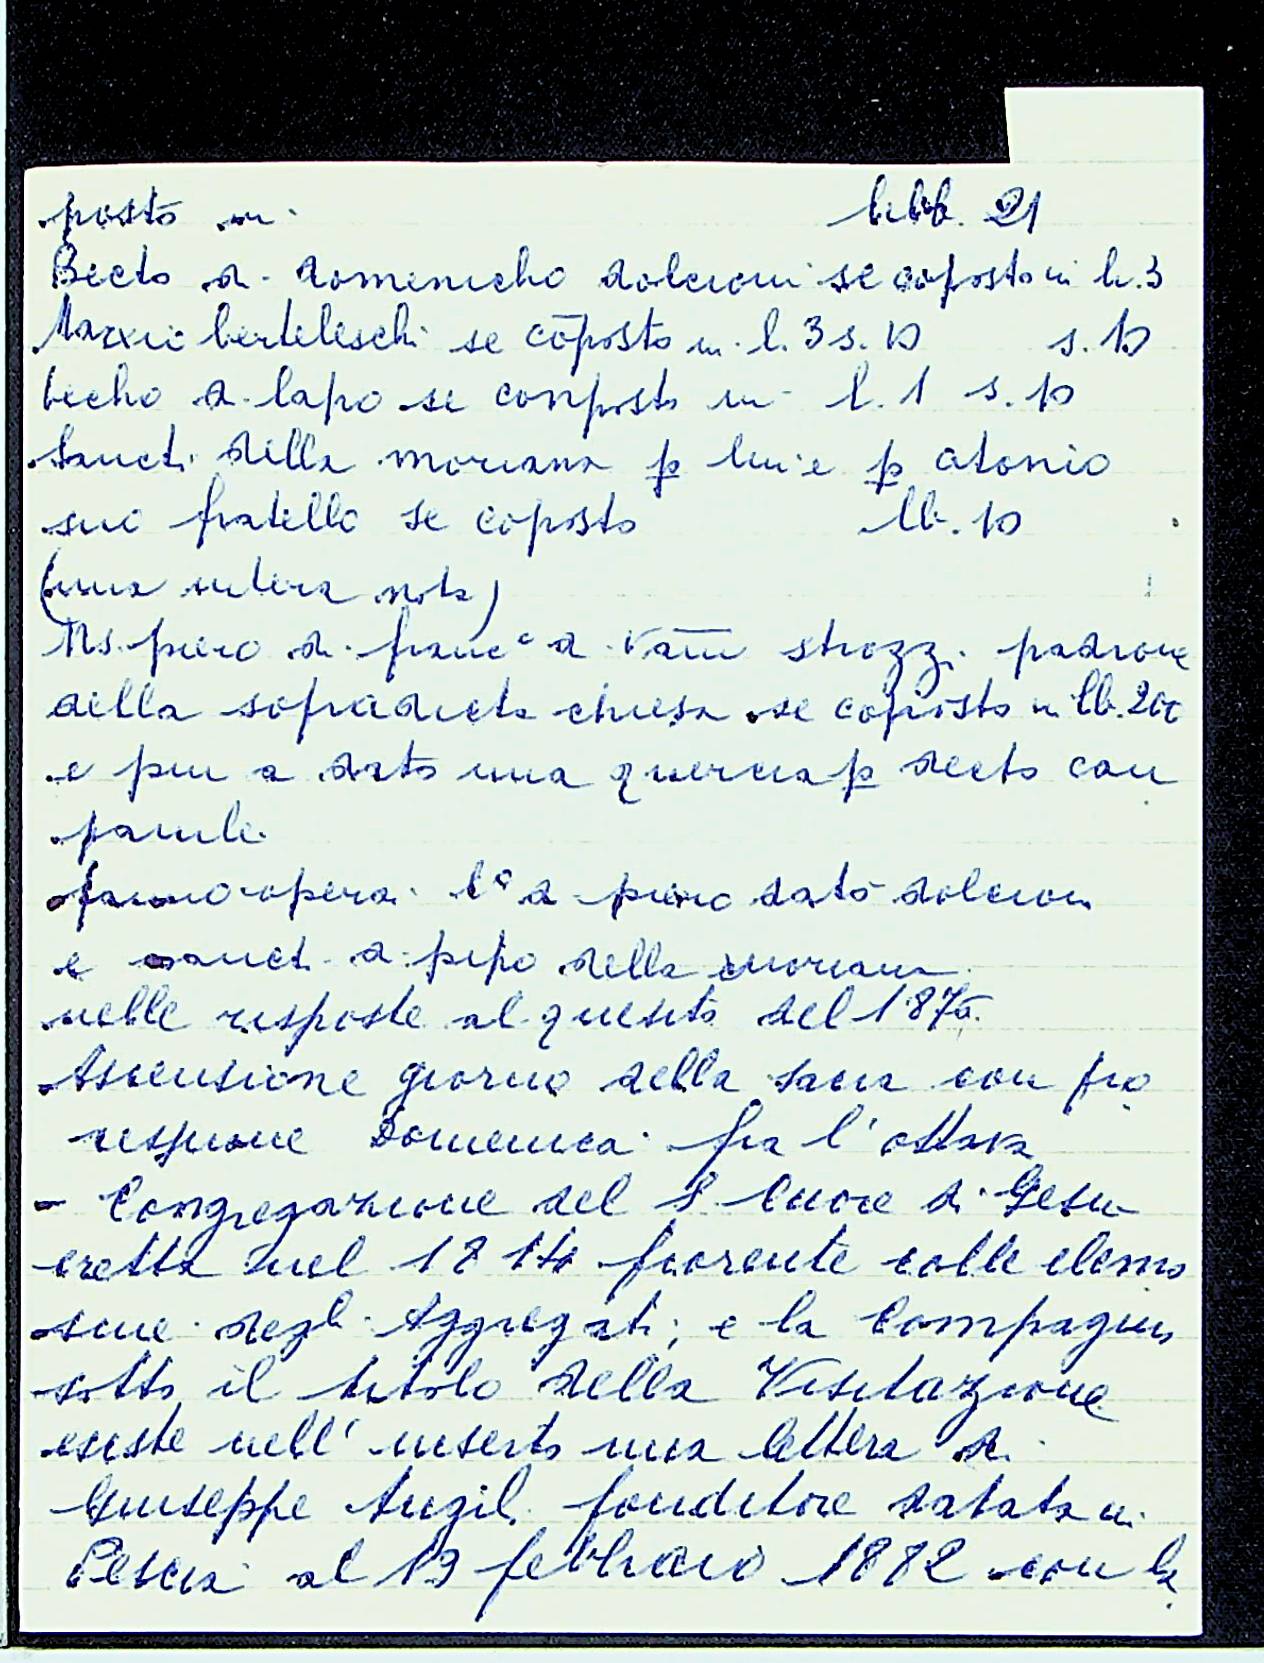 posto in libb. 21
Becto di domenicho dolcioni se coposto in li. 3
Mazzeo berteleschi se cōposto in l. 3 s. 10 s. 10
becho di lapo se conposto in l. 1 s. 10
Sancti della moriana p lui e p atonio
suo fratello se coposto lb. 10
(una intera nota)
Ms. piero di franc° di vāni strozzi padrone
della sopradicta chiesa se coposto in lb. 200
e piu a dato una quercia p decto can
panile
furno operai l° di piero dato dolcioni
e sancti di pipo della moriana
nelle risposte al quesito del 1875
Ascensione giorno della sacra con pro
cessione Domenica fra l'ottava
- Congregazione del S. Cuore di Gesu
eretta nel 1814 fiorente colle elemo
sine degli Aggregati; e la Compagnia
sotto il titolo della Visitazione
esiste nell' inserto una lettera di
Giuseppe Angili fonditore datata in
Pescia al 19 febbraio 1882 con la